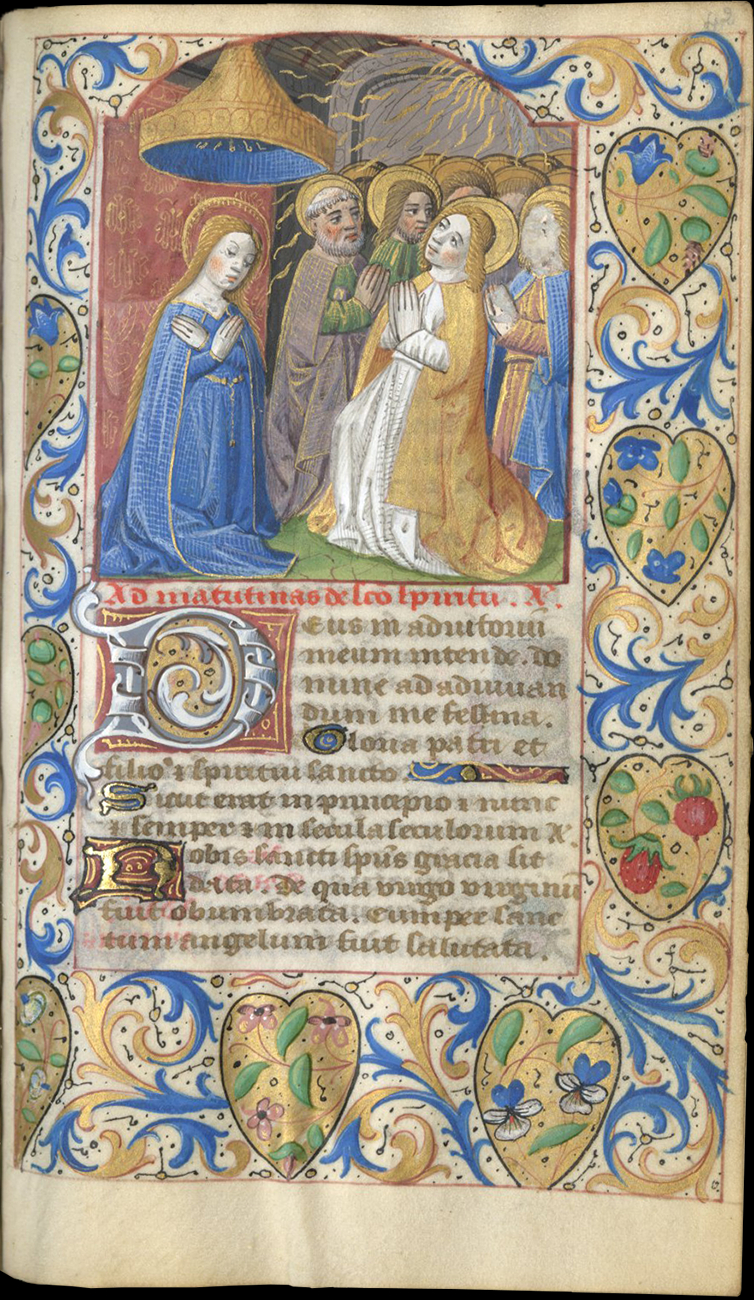 Ad matutinas de sco spiritu. V.
Deus in adiutoriū
meum intende. do
mine ad adiuuan
dum me festina.
Gloria patri et
filio ⁊ spiritui sancto.
Sicut erat in principio ⁊ nunc
⁊ semper ⁊ in secula seculorum
Nobis sancti spūs gracia sit
data. De qua virgo virginū
fuit obumbrata. Cum per sanc
tum angelum fuit salutata.